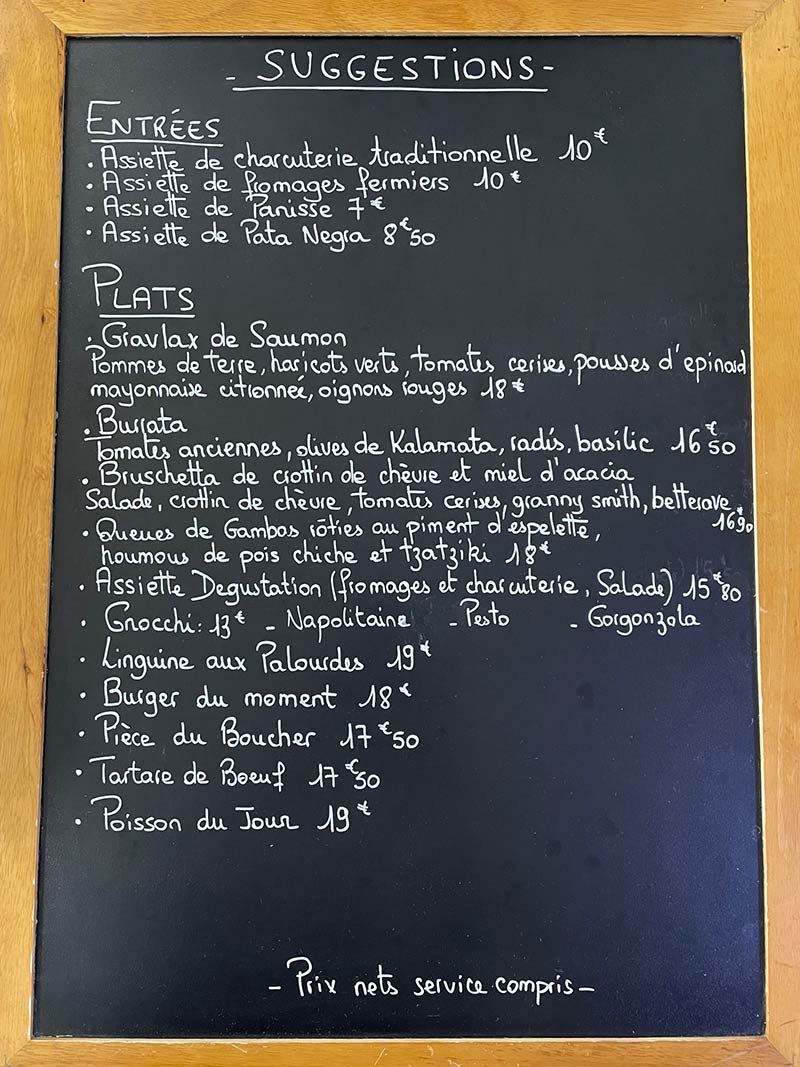 - SUGGESTIONS -
ENTRÉES
. Assiette de charcuterie traditionnelle 10€
. Assiette de fromages fermiers 10€
. Assiette de Panisse 7€
. Assiette de Pata Negra 8€50
PLATS
. Gravlax de Saumon
Pommes de terre, haricots verts, tomates cerises, pousses d'epinard
mayonnaise citronnée, oignons rouges 18€
. Burrata
Tomates anciennes, olives de Kalamata, radis, basilic 16€50
. Bruschetta de crottin de chèvre et miel d'acacia
Salade, crottin de chèvre, tomates cerises, granny smith, betterave
16€90
. Queues de Gambas rôties au piment d'espelette,
houmous de pois chiche et tzatziki 18€
. Assiette Degustation (fromages et charcuterie, Salade) 15€80
. Gnocchi: 13€ - Napolitaine - Pesto - Gorgonzola
. Linguine aux Palourdes 19€
. Burger du moment 18€
. Pièce du Boucher 17€50
. Tartare de Boeuf 17€50
. Poisson du Jour 19€
- Prix nets service compris -